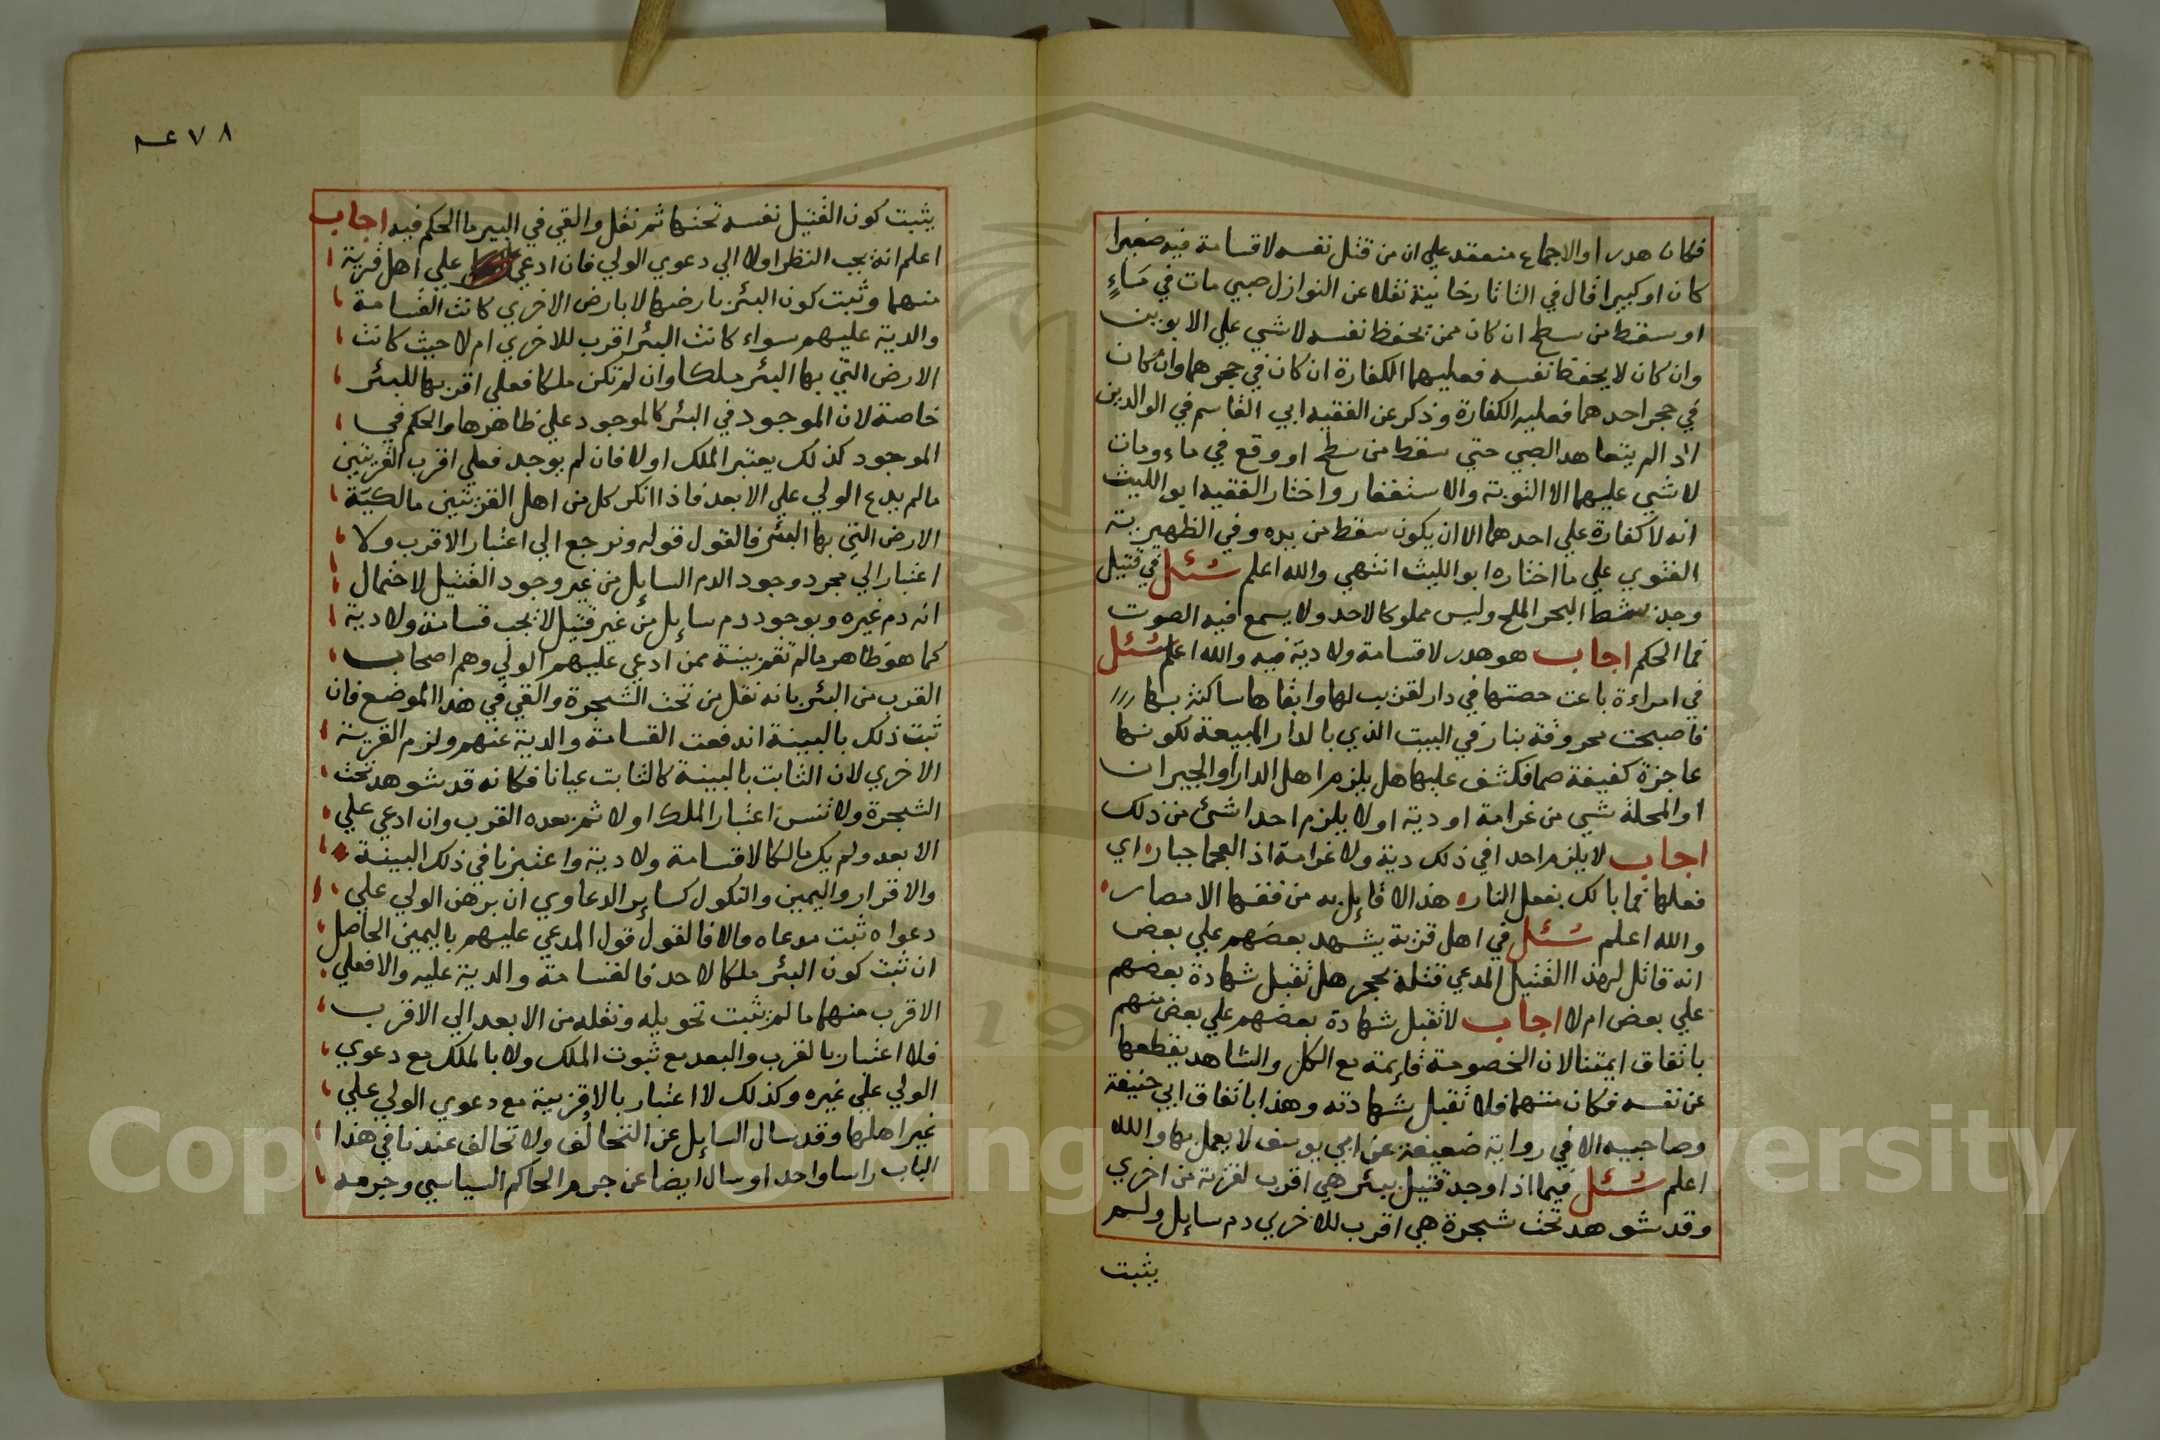 فكان هدرا والاجماع منعقد علي ان من قتل نفسه لاقسامة فيه صغيرا
كان او كبيرا قال في التاتارخانية نقلا عن النوازل صبي مات في مَاءٍ
او سقط من سطح ان كان ممن يحفظ نفسه لاشي علي الابوين
وان كان لا يحفظ نفسه فعليهما الكفارة ان كان في حجرهما وان كان
في حجر احدهما فعليه الكفارة وذكر عن الفقيه ابي القاسم في الوالدين
اذا لم يتعاهد الصبي حتي سقط من سطح او وقع في ماء ومات
لا شي عليهما الا التوبة والاستغفار واختار الفقيه ابو الليث
انه لا كفارة علي احدهما الا ان يكون سقط من يده وفي الظهيرية
الفتوي علي ما اختاره ابو الليث انتهي والله اعلم سُئل في قتيل
وجد بشط البحر الملح وليس مملوكا لاحد ولا يسمع فيه الصوت
فما الحكم اجاب هو هدر لا قسامة ولا دية فيه والله اعلم سُئل
في امراءة باعت حصتها في دار لقريب لها وابقاها ساكنة بها
فاصبحت محروقة بنار في البيت الذي بالدار المبيعة لكونها
عاجزة كفيفة صما فكشف عليها هل يلزم اهل الدار او الجيران
او المحلة شي من غرامة او دية او لا يلزم احدا شئ من ذلك
اجاب لا يلزم احدا في ذلك دية ولا غرامة اذ العجما جبار اي
فعلها فما بالك بفعل النار هذا لا قايل به من فقها الامصار
والله اعلم سُئل في اهل قرية يشهد بعضهم علي بعض
انه قاتل لهذا القتيل المدعي قتله بحجر هل تقبل شهادة بعضهم
علي بعض ام لا اجاب لا تقبل شهادة بعضهم علي بعض منهم
باتفاق ايمتنا لان الخصومة قايمة مع الكل والشاهد يقطعها
عن نفسه فكان متهما فلا تقبل شهادته وهذا باتفاق ابي حنيفة
وصاحبيه الا في رواية ضعيفة عن ابي يوسف لا يعمل بها والله
اعلم سُئل فيما اذا وجد قتيل ببئر هي اقرب لقرية من اخري
وقد شوهد تحت شجرة هي اقرب للاخري دم سايل ولم
يثبت
٧٨
يثبت كون القتيل نفسه تحتها ثم نقل والقي في البير ما الحكم فيه اجاب
اعلم انه يجب النظر اولا الي دعوي الولي فان ادعي علي اهل قرية
منهما وثبت كون البئر بارضها لا بارض الاخري كانت القسامة
والدية عليهم سواء كانت البئر اقرب للاخري ام لا حيث كانت
الارض التي بها البئر ملكا وان لم تكن ملكا فعلي اقربها للبئر
خاصة لان الموجود في البئر كالموجود علي ظاهرها والحكم في
الموجود كذلك يعتبر الملك اولا فان لم يوجد فعلي اقرب القريتين
مالم يدع الولي علي الابعد فاذا انكر كل من اهل القريتين مالكيّة
الارض التي بها البئر فالقول قوله ونرجع الي اعتبار الاقرب ولا
اعتبار الي مجرد وجود الدم السايل من غير وجود القتيل لاحتمال
انه دم غيره وبوجود دم سايل من غير قتيل لا تجب قسامة ولا دية
كما هو ظاهر مالم تقم بينة ممن ادعي عليهم الولي وهم اصحاب
القرب من البئر بانه نقل من تحت الشجرة والقي في هذا الموضع فان
ثبت ذلك بالبينة اندفعت القسامة والدية عنهم ولزم القرية
الاخري لان الثابت بالبينة كالثابت عيانا فكانه قد شوهد تحت
الشجرة ولا تنس اعتبار الملك اولا ثم بعده القرب وان ادعي علي
الابعد ولم يك مالكا لا قسامة ولا دية واعتبرنا في ذلك البينة
والاقرار واليمين والنكول كساير الدعاوي ان برهن الولي علي
دعواه ثبت مدعاه والا فالقول قول المدعي عليهم باليمين الحاصل
ان ثبت كون البئر ملكا لاحد فالقسامة والدية عليه والا فعلي
الاقرب منهما مالم يثبت تحويله ونقله من الابعد الي الاقرب
فلا اعتبار بالقرب والبعد مع ثبوت الملك ولا بالملك مع دعوي
الولي علي غيره وكذلك لا اعتبار بالاقربية مع دعوي الولي علي
غير اهلها وقد سال السايل عن التحالف ولا تحالف عندنا في هذا
الباب راسا واحدا وسال ايضا عن جرم الحاكم السياسي وجرمه
Copyright © King Saud University